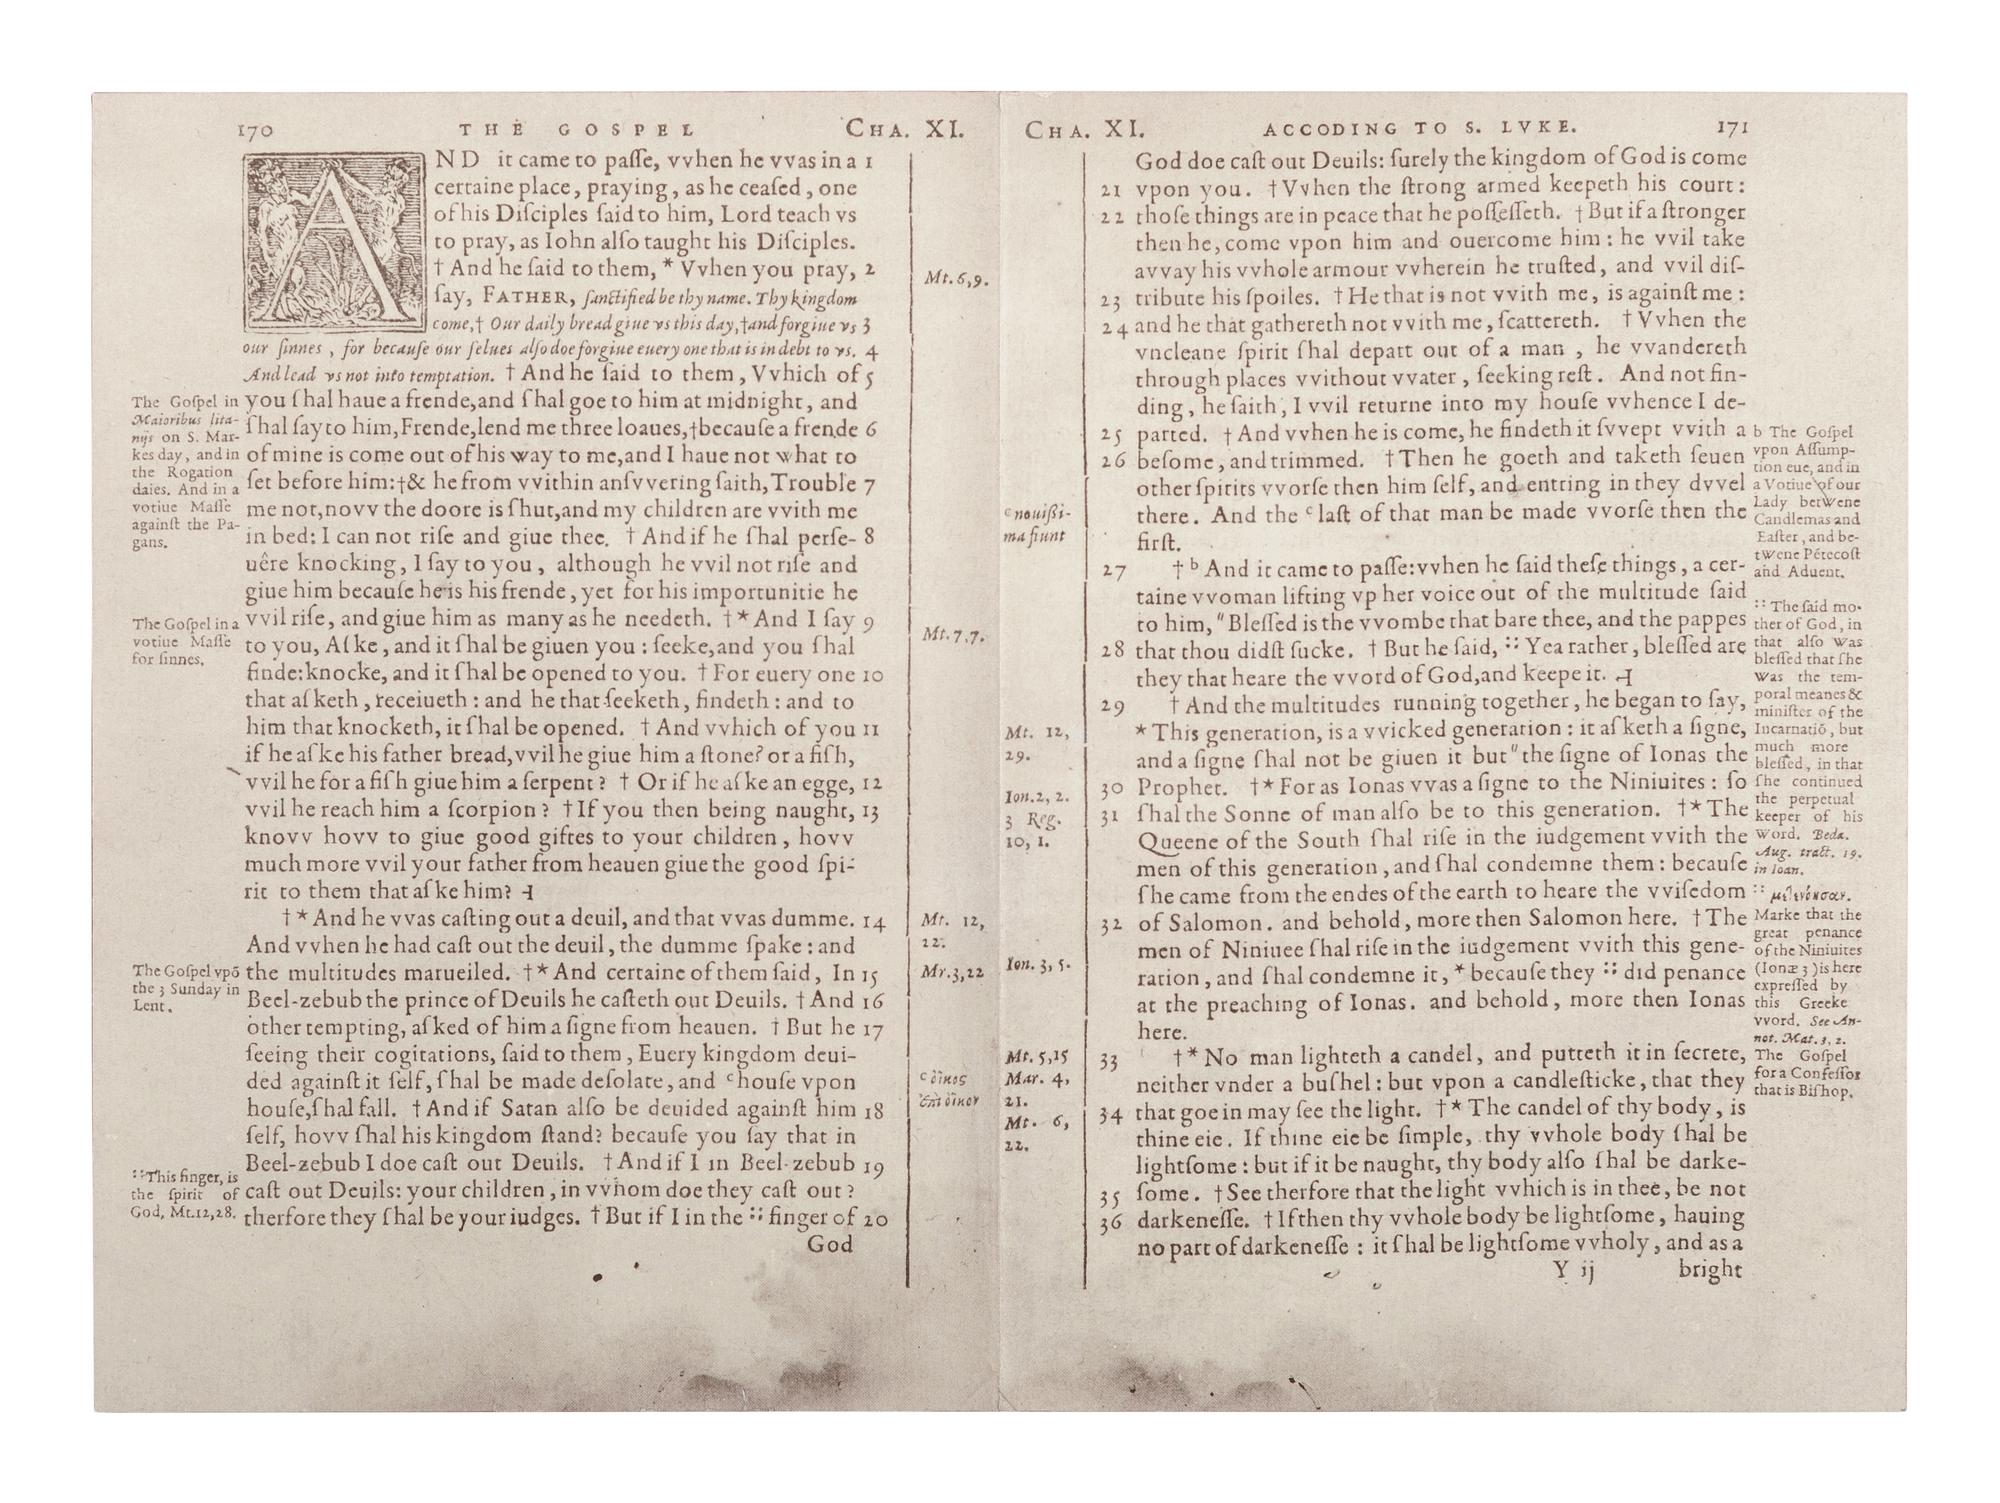 170 THE GOSPEL CHA. XI.
AND it came to paſſe, vvhen he vvas in a 1
certaine place, praying, as he ceaſed, one
of his Diſciples ſaid to him, Lord teach vs
to pray, as Iohn alſo taught his Diſciples.
† And he ſaid to them, * Vvhen you pray, 2
ſay, FATHER, ſanctified be thy name. Thy kingdom
come,† Our daily bread giue vs this day,†and forgiue vs 3
our ſinnes , for becauſe our ſelues alſo doe forgiue euery one that is in debt to vs. 4
And lead vs not into temptation. † And he ſaid to them, Vvhich of 5
you ſhal haue a frende,and ſhal goe to him at midnight, and
ſhal ſay to him,Frende,lend me three loaues,†becauſe a frende 6
of mine is come out of his way to me,and I haue not what to
ſet before him:†& he from vvithin anſvvering ſaith,Trouble 7
me not,novv the doore is ſhut,and my children are vvith me
in bed: I can not riſe and giue thee. † And if he ſhal perſe- 8
uêre knocking, I ſay to you, although he vvil not riſe and
giue him becauſe he is his frende, yet for his importunitie he
vvil riſe, and giue him as many as he needeth. †* And I ſay 9
to you, Aſke, and it ſhal be giuen you : ſeeke,and you ſhal
finde:knocke, and it ſhal be opened to you. † For euery one 10
that aſketh, receiueth : and he that ſeeketh, findeth : and to
him that knocketh, it ſhal be opened. † And vvhich of you 11
if he aſke his father bread,vvil he giue him a ſtone? or a fiſh,
vvil he for a fiſh giue him a ſerpent ? † Or if he aſke an egge, 12
vvil he reach him a ſcorpion ? † If you then being naught, 13
knovv hovv to giue good giftes to your children, hovv
much more vvil your father from heauen giue the good ſpi-
rit to them that aſke him? ⊣
†* And he vvas caſting out a deuil, and that vvas dumme. 14
And vvhen he had caſt out the deuil, the dumme ſpake : and
the multitudes marueiled. †* And certaine of them ſaid, In 15
Beel-zebub the prince of Deuils he caſteth out Deuils. † And 16
other tempting, aſked of him a ſigne from heauen. † But he 17
ſeeing their cogitations, ſaid to them, Euery kingdom deui-
ded againſt it ſelf, ſhal be made deſolate, and ᶜhouſe vpon
houſe,ſhal fall. † And if Satan alſo be deuided againſt him 18
ſelf, hovv ſhal his kingdom ſtand? becauſe you ſay that in
Beel-zebub I doe caſt out Deuils. † And if I in Beel-zebub 19
caſt out Deuils: your children, in vvhom doe they caſt out ?
therfore they ſhal be your iudges. † But if I in the ∷ finger of 20
God
The Goſpel in
Maioribus lita-
nijs on S. Mar-
kes day, and in
the Rogation
daies. And in a
votiue Maſſe
againſt the Pa-
gans.
The Goſpel in a
votiue Maſſe
for ſinnes.
The Goſpel vpō
the 3 Sunday in
Lent.
∷This finger, is
the ſpirit of
God, Mt.12,28.
Mt. 6,9.
Mt. 7,7.
Mt. 12,
22.
Mr. 3,22
ᶜ οἶκος
ἐπὶ οἶκον
CHA. XI. ACCODING TO S. LVKE. 171
God doe caſt out Deuils: ſurely the kingdom of God is come
21 vpon you. † Vvhen the ſtrong armed keepeth his court:
22 thoſe things are in peace that he poſſeſſeth. † But if a ſtronger
then he, come vpon him and ouercome him : he vvil take
avvay his vvhole armour vvherein he truſted, and vvil diſ-
23 tribute his ſpoiles. † He that is not vvith me, is againſt me :
24 and he that gathereth not vvith me, ſcattereth. † Vvhen the
vncleane ſpirit ſhal depart out of a man , he vvandereth
through places vvithout vvater, ſeeking reſt. And not fin-
ding, he ſaith, I vvil returne into my houſe vvhence I de-
25 parted. † And vvhen he is come, he findeth it ſvvept vvith a
26 beſome, and trimmed. † Then he goeth and taketh ſeuen
other ſpirits vvorſe then him ſelf, and entring in they dvvel
there. And the ᶜ laſt of that man be made vvorſe then the
firſt.
27 † ᵇ And it came to paſſe: vvhen he ſaid theſe things, a cer-
taine vvoman lifting vp her voice out of the multitude ſaid
to him, "Bleſſed is the vvombe that bare thee, and the pappes
28 that thou didſt ſucke. † But he ſaid, ∷ Yea rather, bleſſed are
they that heare the vvord of God, and keepe it. ⊣
29 † And the multitudes running together, he began to ſay,
* This generation, is a vvicked generation : it aſketh a ſigne,
and a ſigne ſhal not be giuen it but "the ſigne of Ionas the
30 Prophet. †* For as Ionas vvas a ſigne to the Niniuites : ſo
31 ſhal the Sonne of man alſo be to this generation. †* The
Queene of the South ſhal riſe in the iudgement vvith the
men of this generation, and ſhal condemne them : becauſe
ſhe came from the endes of the earth to heare the vviſedom
32 of Salomon. and behold, more then Salomon here. † The
men of Niniuee ſhal riſe in the iudgement vvith this gene-
ration, and ſhal condemne it, * becauſe they ∷ did penance
at the preaching of Ionas. and behold, more then Ionas
here.
33 †* No man lighteth a candel, and putteth it in ſecrete,
neither vnder a buſhel: but vpon a candleſticke, that they
34 that goe in may ſee the light. †* The candel of thy body, is
thine eie. If thine eie be ſimple, thy vvhole body ſhal be
lightſome : but if it be naught, thy body alſo ſhal be darke-
35 ſome. † See therfore that the light vvhich is in thee, be not
36 darkeneſſe. † If then thy vvhole body be lightſome, hauing
no part of darkeneſſe : it ſhal be lightſome vvholy, and as a
Y ij bright
ᶜ nouißi-
ma fiunt
Mt. 12,
29.
Ion. 2, 2.
3 Reg.
10, 1.
Ion. 3, 5.
Mt. 5,15
Mar. 4,
21.
Mt. 6,
22.
b The Goſpel
vpon Aſſump-
tion eue, and in
a Votiue of our
Lady betwene
Candlemas and
Eaſter, and be-
twene Pētecoſt
and Aduent.
∷ The ſaid mo-
ther of God, in
that alſo was
bleſſed that ſhe
was the tem-
poral meanes &
miniſter of the
Incarnatiō, but
much more
bleſſed, in that
ſhe continued
the perpetual
keeper of his
word. Beda.
Aug. tract. 19.
in Ioan.
∷ μετενόησαν.
Marke that the
great penance
of the Niniuites
(Ionæ 3) is here
expreſſed by
this Greeke
vvord. See An-
not. Mat. 3, 2.
The Goſpel
for a Confeſſor
that is Biſhop.